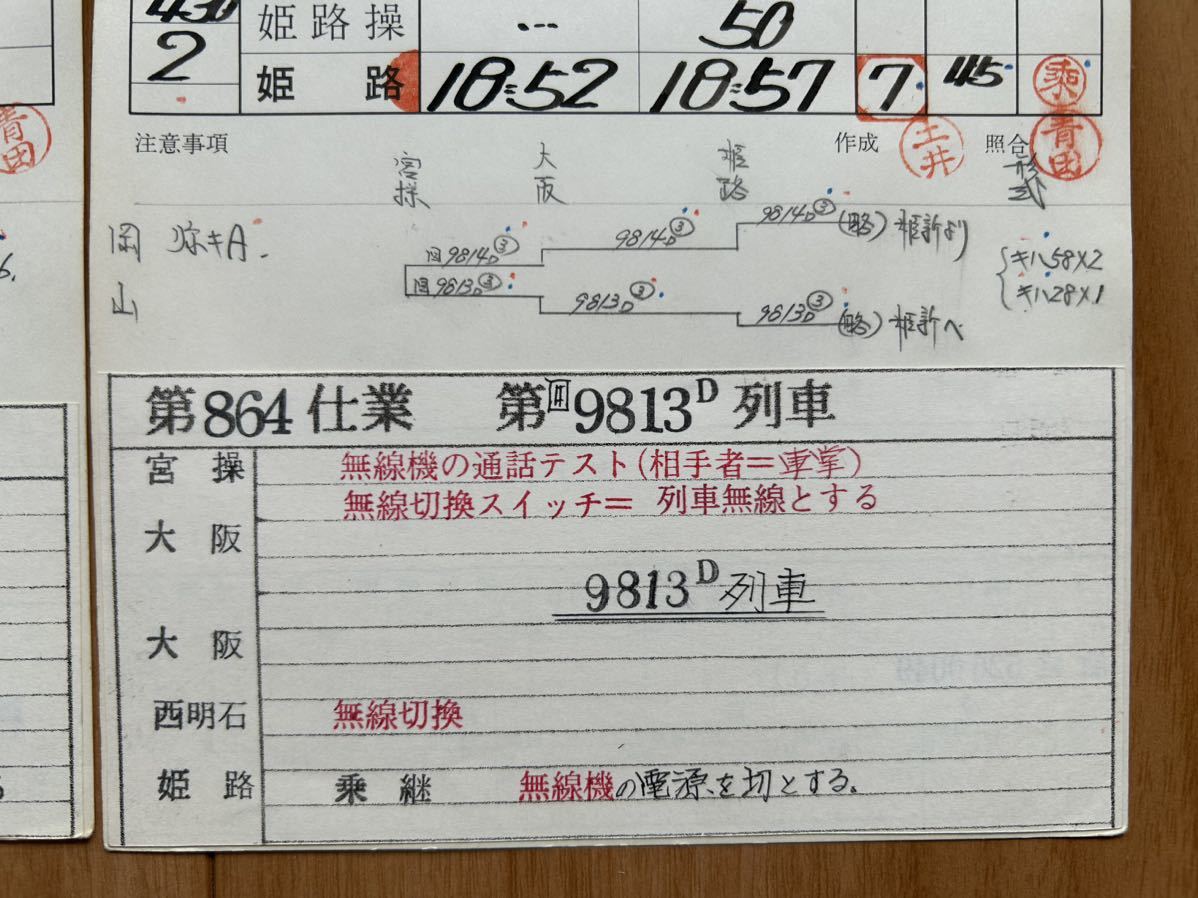 430 姫路操 … 50
2 姫路 18:52 18:57 7 45 乗
注意事項 作成 土井 照合 青田
宮操 大阪 姫路 形式
青田
岡山 9814D③ 9814D③ 9814D③ (略) 姫新より キハ58×2
6. 回9813D③ 9813D③ 9813D③ (略) 姫新へ キハ28×1
第864仕業 第回9813D列車
宮操 無線機の通話テスト(相手者=車掌)
無線切換スイッチ= 列車無線とする
大阪
9813D列車
大阪
西明石 無線切換
姫路 乗継 無線機の電源を切とする。